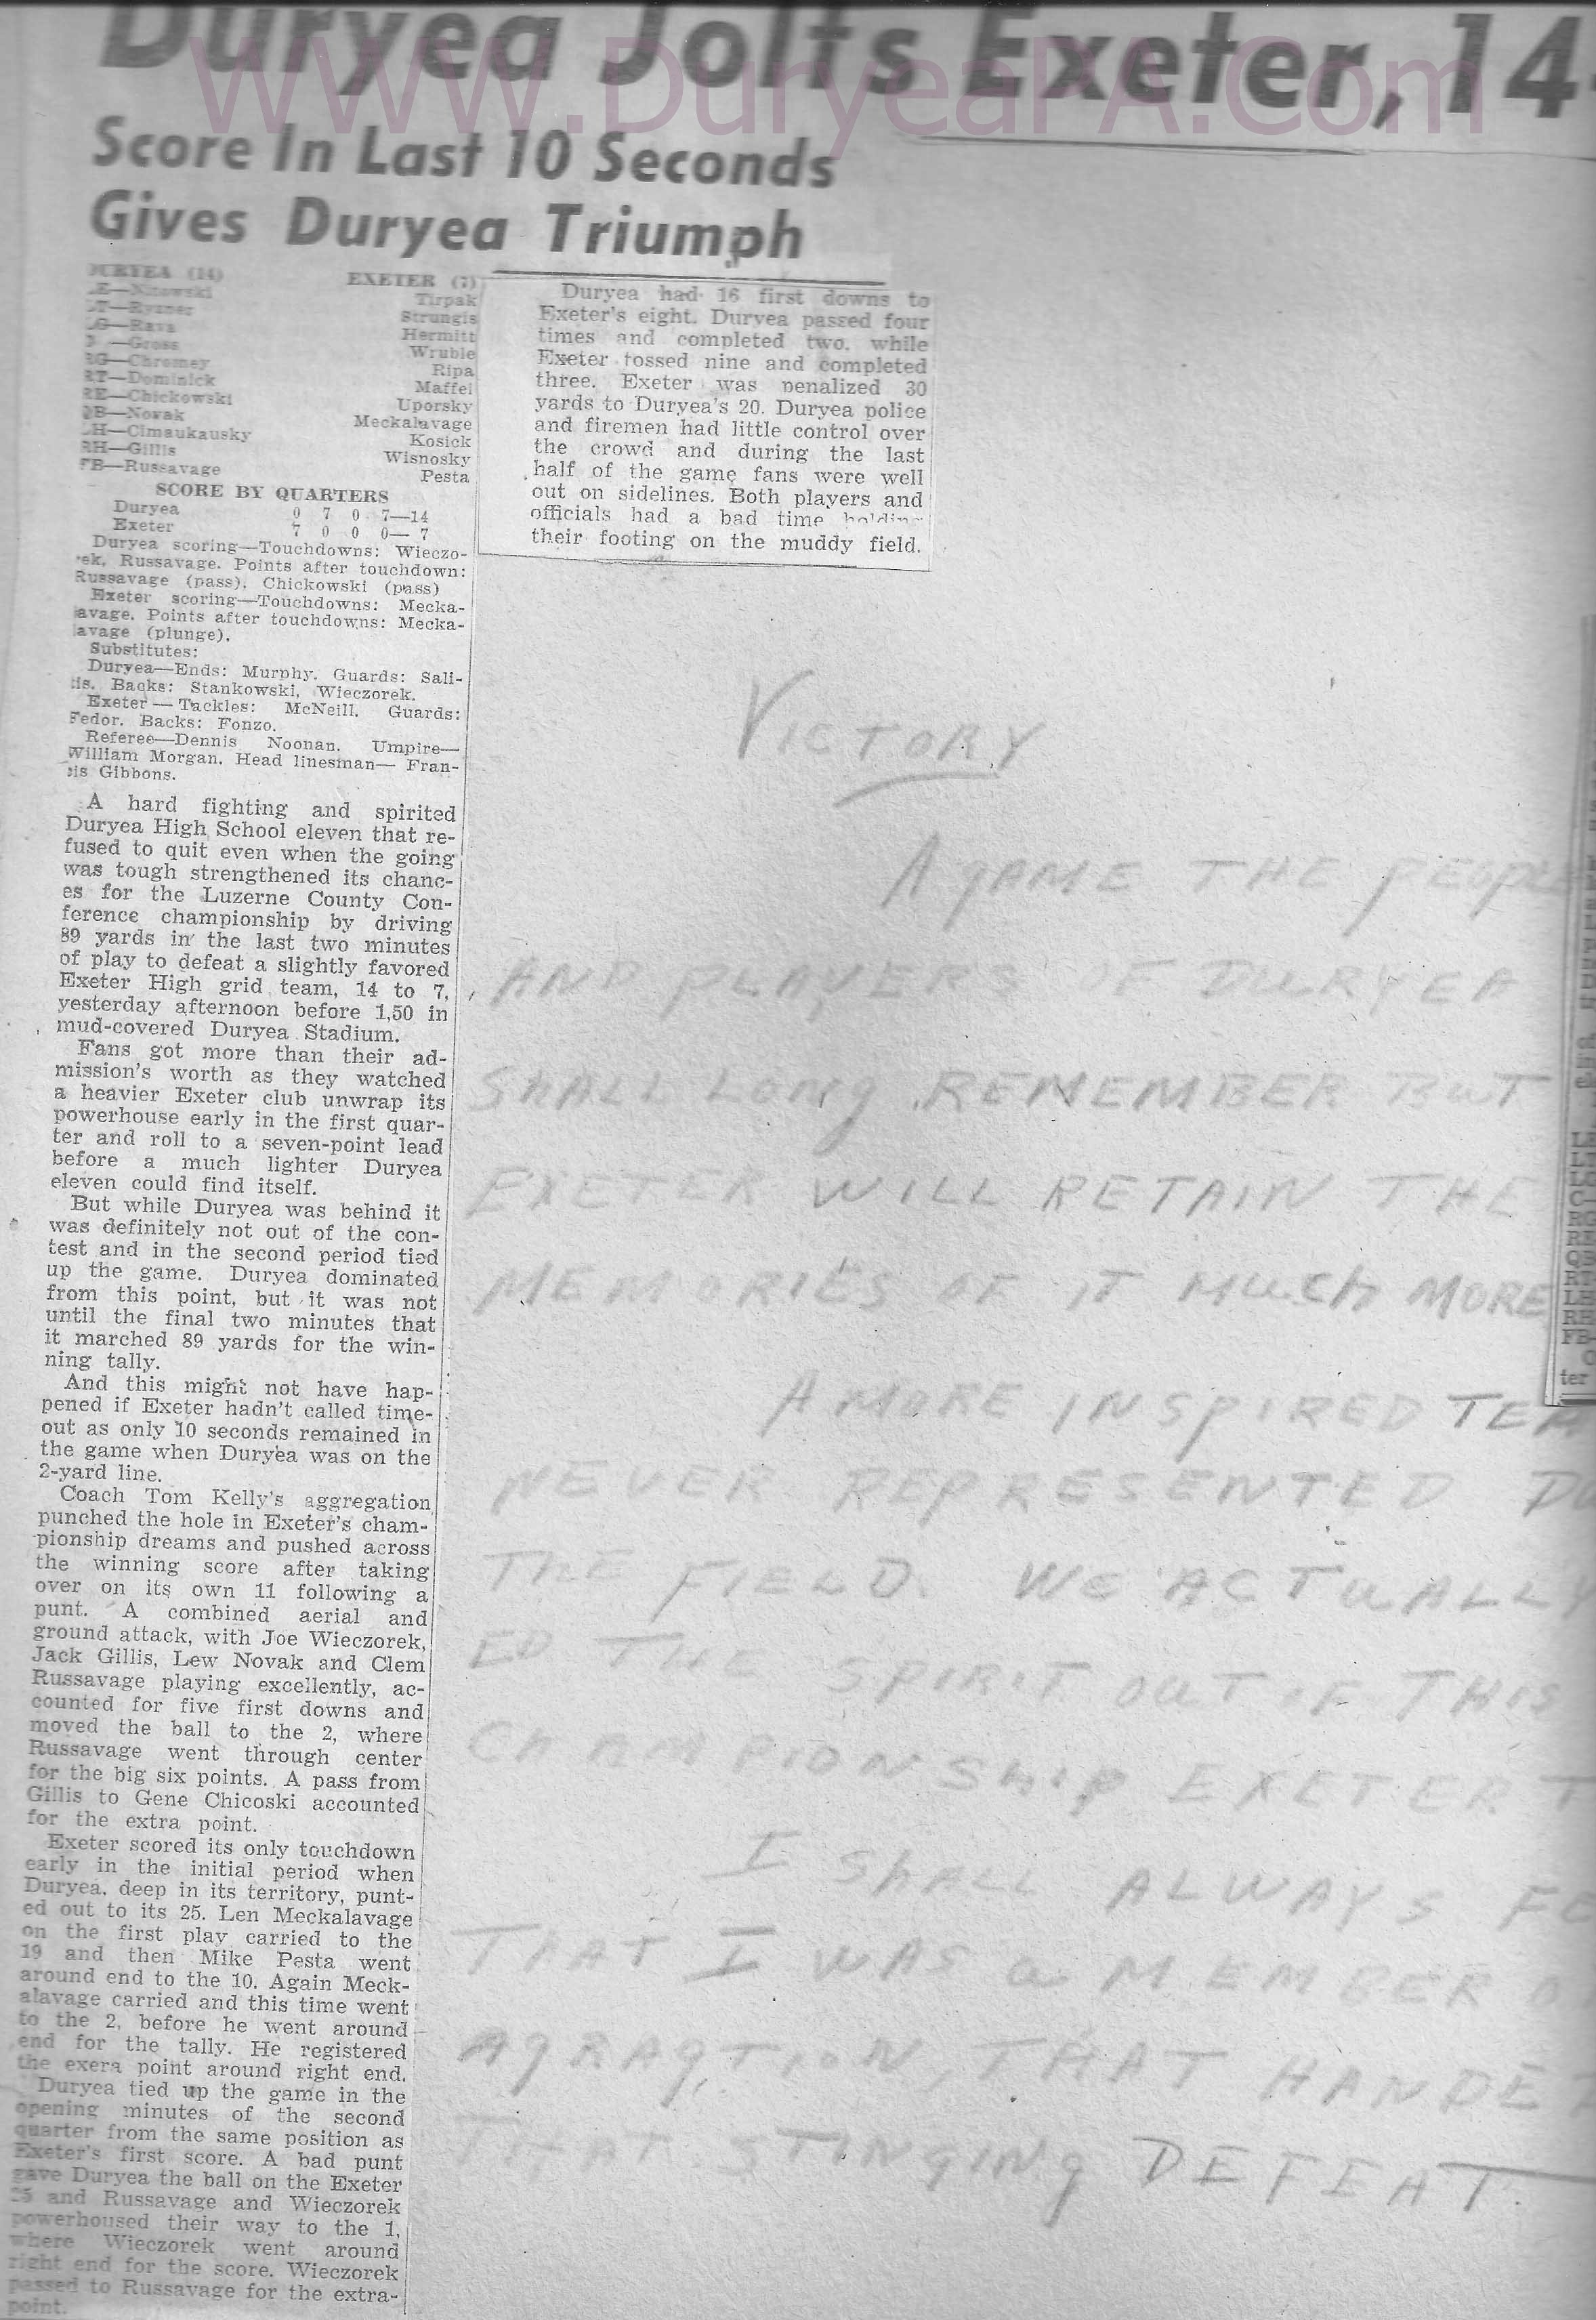 Duryea Jolts Exeter, 14-
WWW.DuryeaPA.Com
Score In Last 10 Seconds
Gives Duryea Triumph
DURYEA (14) EXETER (7)
LE—Nitowski Tirpak
LT—Ryzner Strungis
LG—Rava Hermitt
—Gross Wruble
RG—Chromey Ripa
RT—Dominick Maffei
RE—Chickowski Uporsky
QB—Novak Meckalavage
LH—Cimaukausky Kosick
RH—Gillis Wisnosky
FB—Russavage Pesta
SCORE BY QUARTERS
Duryea 0 7 0 7—14
Exeter 7 0 0 0— 7
Duryea scoring—Touchdowns: Wieczo-
rek, Russavage. Points after touchdown:
Russavage (pass), Chickowski (pass)
Exeter scoring—Touchdowns: Mecka-
lavage. Points after touchdowns: Mecka-
lavage (plunge).
Substitutes:
Duryea—Ends: Murphy. Guards: Sali-
tis. Backs: Stankowski, Wieczorek.
Exeter — Tackles: McNeill. Guards:
Fedor. Backs: Fonzo.
Referee—Dennis Noonan. Umpire—
William Morgan. Head linesman— Fran-
cis Gibbons.
A hard fighting and spirited
Duryea High School eleven that re-
fused to quit even when the going
was tough strengthened its chanc-
es for the Luzerne County Con-
ference championship by driving
89 yards in the last two minutes
of play to defeat a slightly favored
Exeter High grid team, 14 to 7,
yesterday afternoon before 1,50 in
mud-covered Duryea Stadium.
Fans got more than their ad-
mission's worth as they watched
a heavier Exeter club unwrap its
powerhouse early in the first quar-
ter and roll to a seven-point lead
before a much lighter Duryea
eleven could find itself.
But while Duryea was behind it
was definitely not out of the con-
test and in the second period tied
up the game. Duryea dominated
from this point, but it was not
until the final two minutes that
it marched 89 yards for the win-
ning tally.
And this might not have hap-
pened if Exeter hadn't called time-
out as only 10 seconds remained in
the game when Duryea was on the
2-yard line.
Coach Tom Kelly's aggregation
punched the hole in Exeter's cham-
pionship dreams and pushed across
the winning score after taking
over on its own 11 following a
punt. A combined aerial and
ground attack, with Joe Wieczorek,
Jack Gillis, Lew Novak and Clem
Russavage playing excellently, ac-
counted for five first downs and
moved the ball to the 2, where
Russavage went through center
for the big six points. A pass from
Gillis to Gene Chicoski accounted
for the extra point.
Exeter scored its only touchdown
early in the initial period when
Duryea, deep in its territory, punt-
ed out to its 25. Len Meckalavage
on the first play carried to the
19 and then Mike Pesta went
around end to the 10. Again Meck-
alavage carried and this time went
to the 2, before he went around
end for the tally. He registered
the exera point around right end.
Duryea tied up the game in the
opening minutes of the second
quarter from the same position as
Exeter's first score. A bad punt
gave Duryea the ball on the Exeter
25 and Russavage and Wieczorek
powerhoused their way to the 1,
where Wieczorek went around
right end for the score. Wieczorek
passed to Russavage for the extra-
point.
Duryea had 16 first downs to
Exeter's eight. Duryea passed four
times and completed two, while
Exeter tossed nine and completed
three. Exeter was penalized 30
yards to Duryea's 20. Duryea police
and firemen had little control over
the crowd and during the last
half of the game fans were well
out on sidelines. Both players and
officials had a bad time holding
their footing on the muddy field.
VICTORY
A GAME THE PEOPLE
AND PLAYERS OF DURYEA
SHALL LONG REMEMBER BUT
EXETER WILL RETAIN THE
MEMORIES OF IT MUCH MORE
A MORE INSPIRED TEA
NEVER REPRESENTED DU
THE FIELD. WE ACTUALLY
ED THE SPIRIT OUT OF THIS
CHAMPIONSHIP EXETER T
I SHALL ALWAYS FE
THAT I WAS A MEMBER O
AGRAGTION THAT HANDE
THAT STINGING DEFEAT.
LE
LT
LG
C
RG
RE
QB
RT
LH
RH
FB-
ter